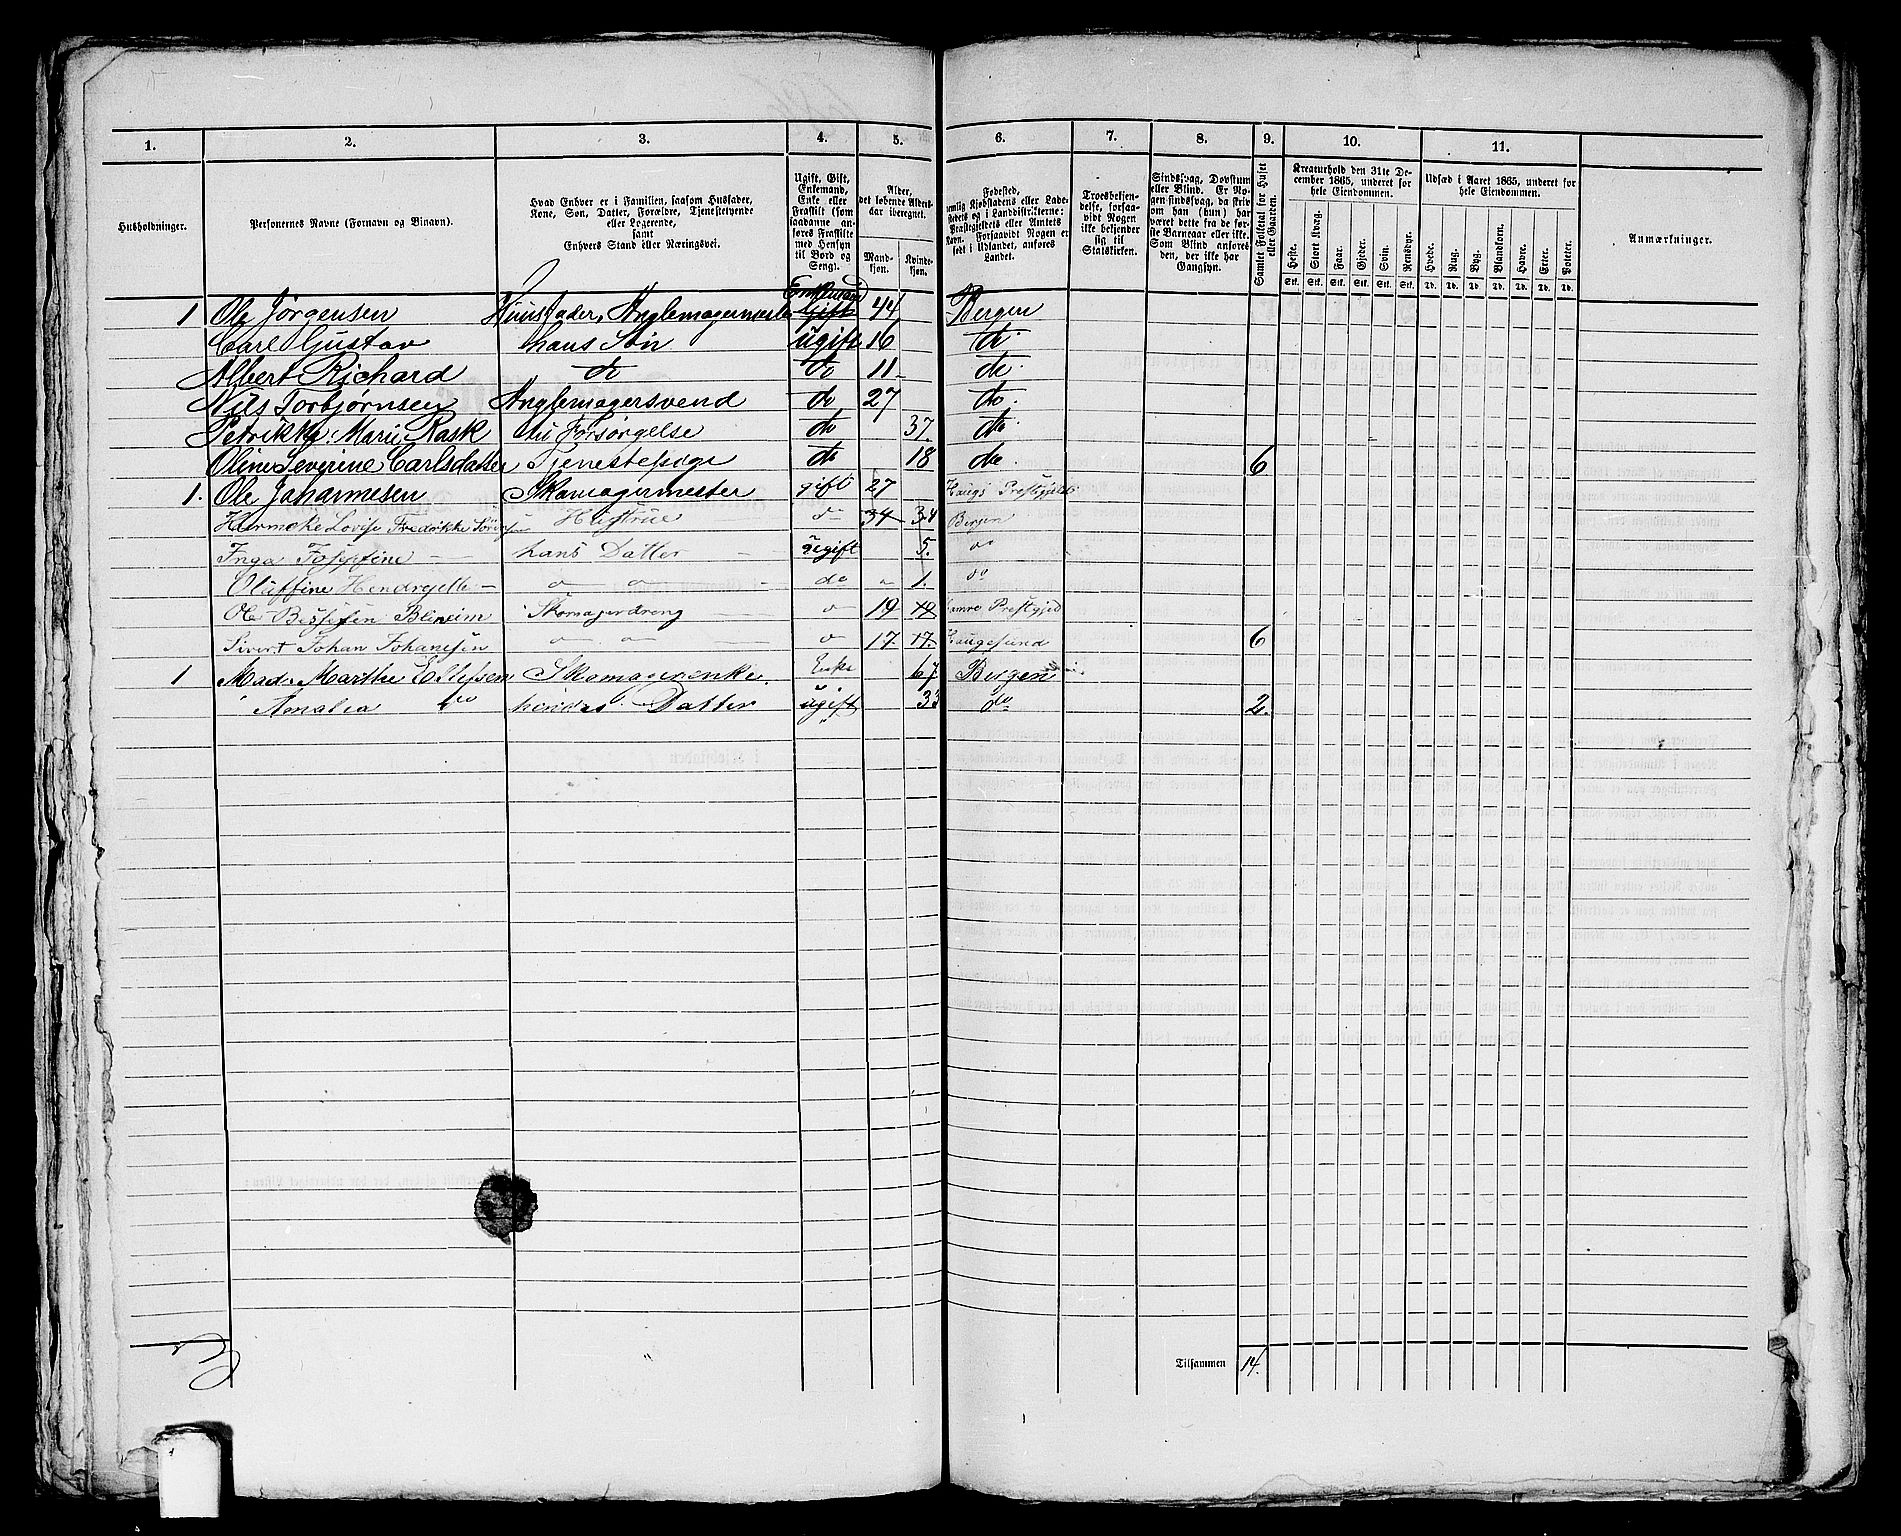 1. 2. 3. 4. 5. 6. 7. 8. 9. 10. 11.
Husholdninger.
Personernes Navne (Fornavn og Binavn).
Hvad Enhver er i Familien, saasom Husfader,
Kone, Søn, Datter, Forældre, Tjenestetyende
eller Logerende,
samt
Enhvers Stand eller Næringsvei.
Ugift, Gift,
Enkemand,
Enke eller
Fraskilt (som
saadanne an-
føres Fraskilte
med Hensyn
til Bord og
Seng).
Alder,
det løbende Alders-
aar iberegnet.
Mand-
kjøn.
Kvinde-
kjøn.
Fødested,
nemlig Kjøbstadens eller Lade-
stedets og i Landdistrikterne:
Præstegjeldets eller Amtets
Navn. Forsaavidt Nogen er
født i Udlandet, anføres
Landet.
Troesbekjen-
delse, forsaa-
vidt Nogen
ikke bekjender
sig til
Statskirken.
Sindssvag, Døvstum
eller Blind. Er No-
gen sindssvag, da skriv
om han (hun) har
været dette fra de før-
ste Barneaar eller ikke.
Som Blind anføres
den, der ikke har
Gangsyn.
Samlet Folketal for Huset
eller Gaarden.
Kreaturhold den 31te De-
cember 1865, underet for
hele Eiendommen.
Heste. Stort Kvæg. Faar. Gjeder. Svin. Rensdyr.
Stk. Stk. Stk. Stk. Stk. Stk.
Udsæd i Aaret 1865, underet for
hele Eiendommen.
Hvede. Rug. Byg. Blandkorn. Havre. Erter. Poteter.
Td. Td. Td. Td. Td. Td. Td.
Anmærkninger.
1 Ole Jørgensen Huusfader, Anglemagermester Enkemand Gift 44 Bergen
Carl Gustav hans Søn ugift 16 do
Albert Richard do do 11 do
Nils Torbjørnsen Anglemagersvend do 27 do
Petrikke Marie Rask til Forsørgelse do 37 do
Oline Severine Carlsdatter Tjenestepige do 18 do 6
1. Ole Johannesen Skomagermester gift 27 Haugs Prestgjeld
Lovise Fredrikke Hustrue do 34 34 Bergen
Inga hans Datter ugift 5. do
do 1. do
Ole Skomagerdreng do 19 19 Hamre Prestgjeld
Sivert Johan Johansen do 17 17. Haugesund 6
1 Mad. Marthe Ellefsen Skomagerenke Enke 67 Bergen
Amalia do hendes Datter ugift 33 do 2.
Tilsammen 14.